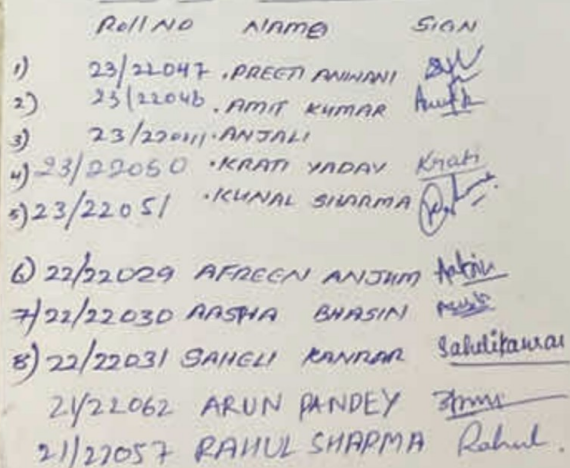 Roll NO NAME SIGN
1) 23/22047 .PREETI ANIWANI
2) 23/22046 .AMIT KUMAR Amit
3) 23/22011 .ANJALI
4) 23/22050 .KRATI YADAV Krati
5) 23/22051 .KUNAL SHARMA
6) 22/22029 AFREEN ANJUM
7) 22/22030 AASHA BHASIN
8) 22/22031 SAHELI KANRAR Sahelikanrar
21/22062 ARUN PANDEY
21/22057 RAHUL SHARMA Rahul.